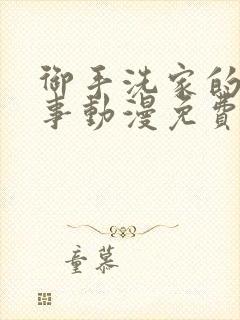 御手洗家的
事動漫免費
童慕